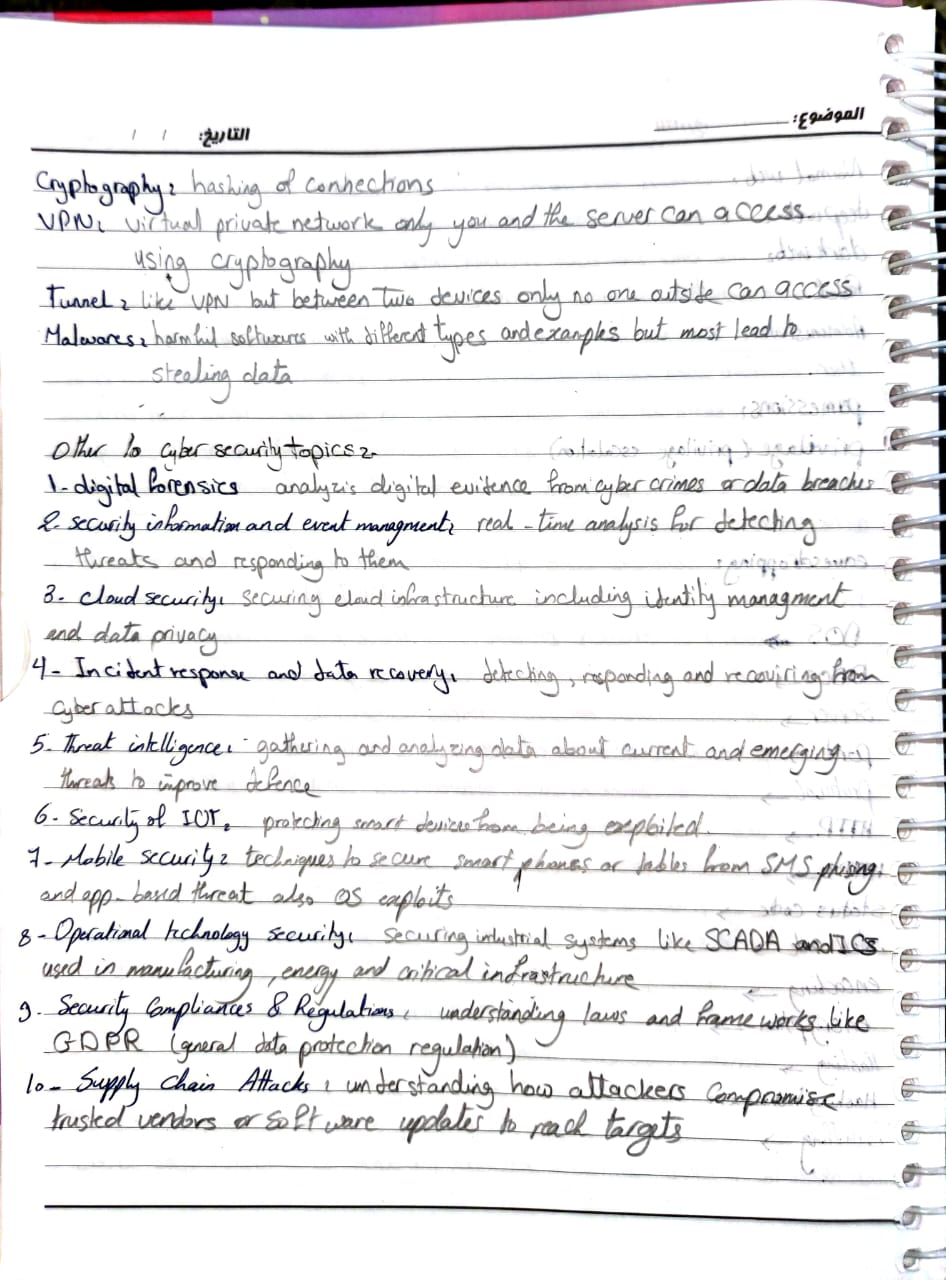 الموضوع:
التاريخ: / /
Cryptography: hashing of connections
VPN: virtual private network only you and the server can access
using cryptography
Tunnel: like VPN but between two devices only no one outside can access
Malwares: harmful softwares with different types and examples but most lead to
stealing data
Other 10 cyber security topics:
1- digital forensics analyzis digital evidence from cyber crimes or data breaches
2- security information and event managment: real-time analysis for detecting
threats and responding to them
3- cloud security: securing cloud infrastructure including identity managment
and data privacy
4- Incident response and data recovery: detecting, responding and recoviring from
cyber attacks
5- threat intelligence: gathering and analyzing data about current and emerging
threats to improve defence
6- Security of IOT: protecting smart devices from being exeploited.
7- Mobile security: techniques to secure smart phones or tables from SMS phising
and app-based threat also OS exploits
8- Operational technology security: securing industrial systems like SCADA and ICS
used in manufacturing, energy and critical infrastructure
9- Security Compliances & Regulations: understanding laws and frameworks like
GDPR (general data protection regulation)
10- Supply Chain Attacks: understanding how attackers compromise
trusted vendors or software updates to reach targets